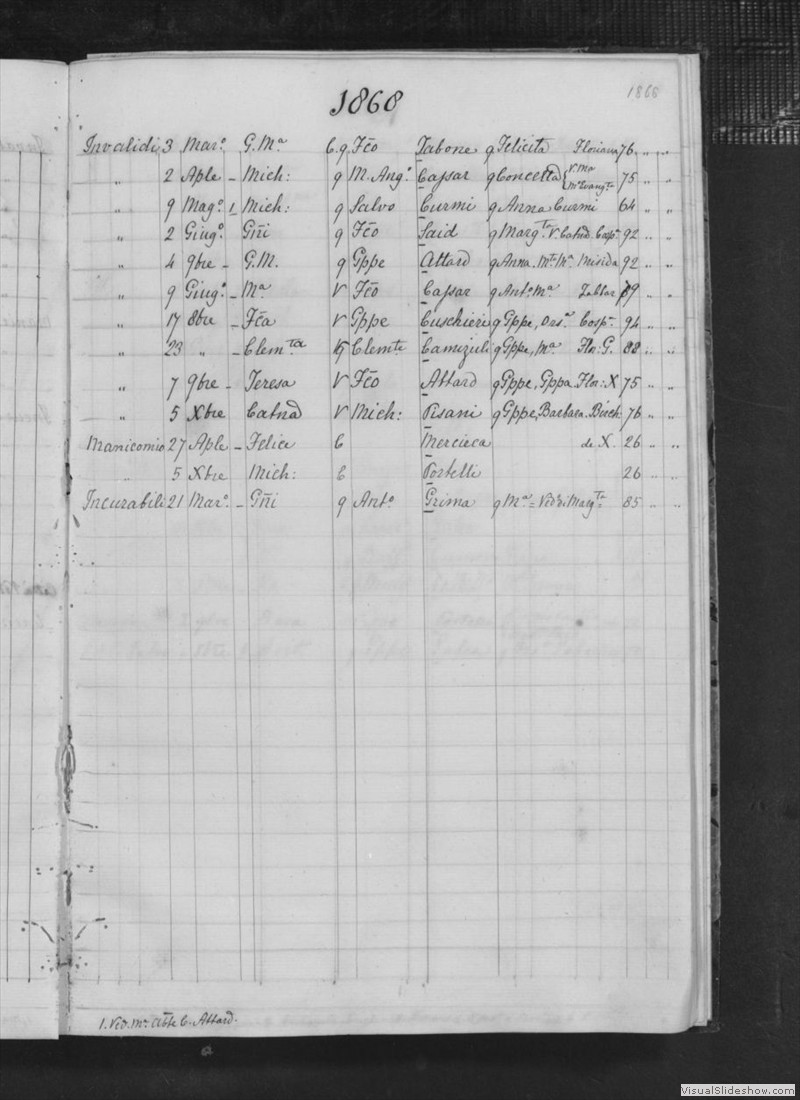 1868
1868
Invalidi 3 Mar.º G. Mª C. q Fcõ Tabone q Felicita Floriana 76 „ „
„ 2 Aple - Mich: q M. Ang.º Cassar q Concetta V. Ma 75 „ „
Mª Evang.ta
„ 9 Mag.º 1 Mich: q Salvo Curmi q Anna Curmi 64 „ „
„ 2 Giug.º Gñi q Fcõ Said q Marg.ta V. Catnd. Casp. 92 „ „
„ 4 9bre - G. M. q Gppe Attard q Anna. Mta Mª Misida 92 „ „
„ 9 Giug.º - Mª V Fcõ Cassar q Ant.ª Mª Zabbar 69 „ „
„ 17 8bre - Fca V Gppe Cuschieri q Gppe, Ors.ª Cosp. 94 „ „
„ 23 „ - Clem.ta q Clem.te Camizuli q Gppe, Mª Flor: G. 88 „ „
„ 7 9bre - Teresa V Fcõ Attard q Gppe, Gppa. Flor: X 75 „ „
„ 5 Xbre Catnã V Mich: Pisani q Gppe, Barbara. Birch. 76 „ „
Manicomio 27 Aple - Felice C Mercieca de X. 26 „ „
„ 5 Xbre Mich: C Portelli 26 „ „
Incurabili 21 Mar.º - Gñi q Ant.º Grima q Mª = Ved: di Marg.ta 85 „ „
1. Ved. Mª Able C. Attard.
VisualSlideshow.com